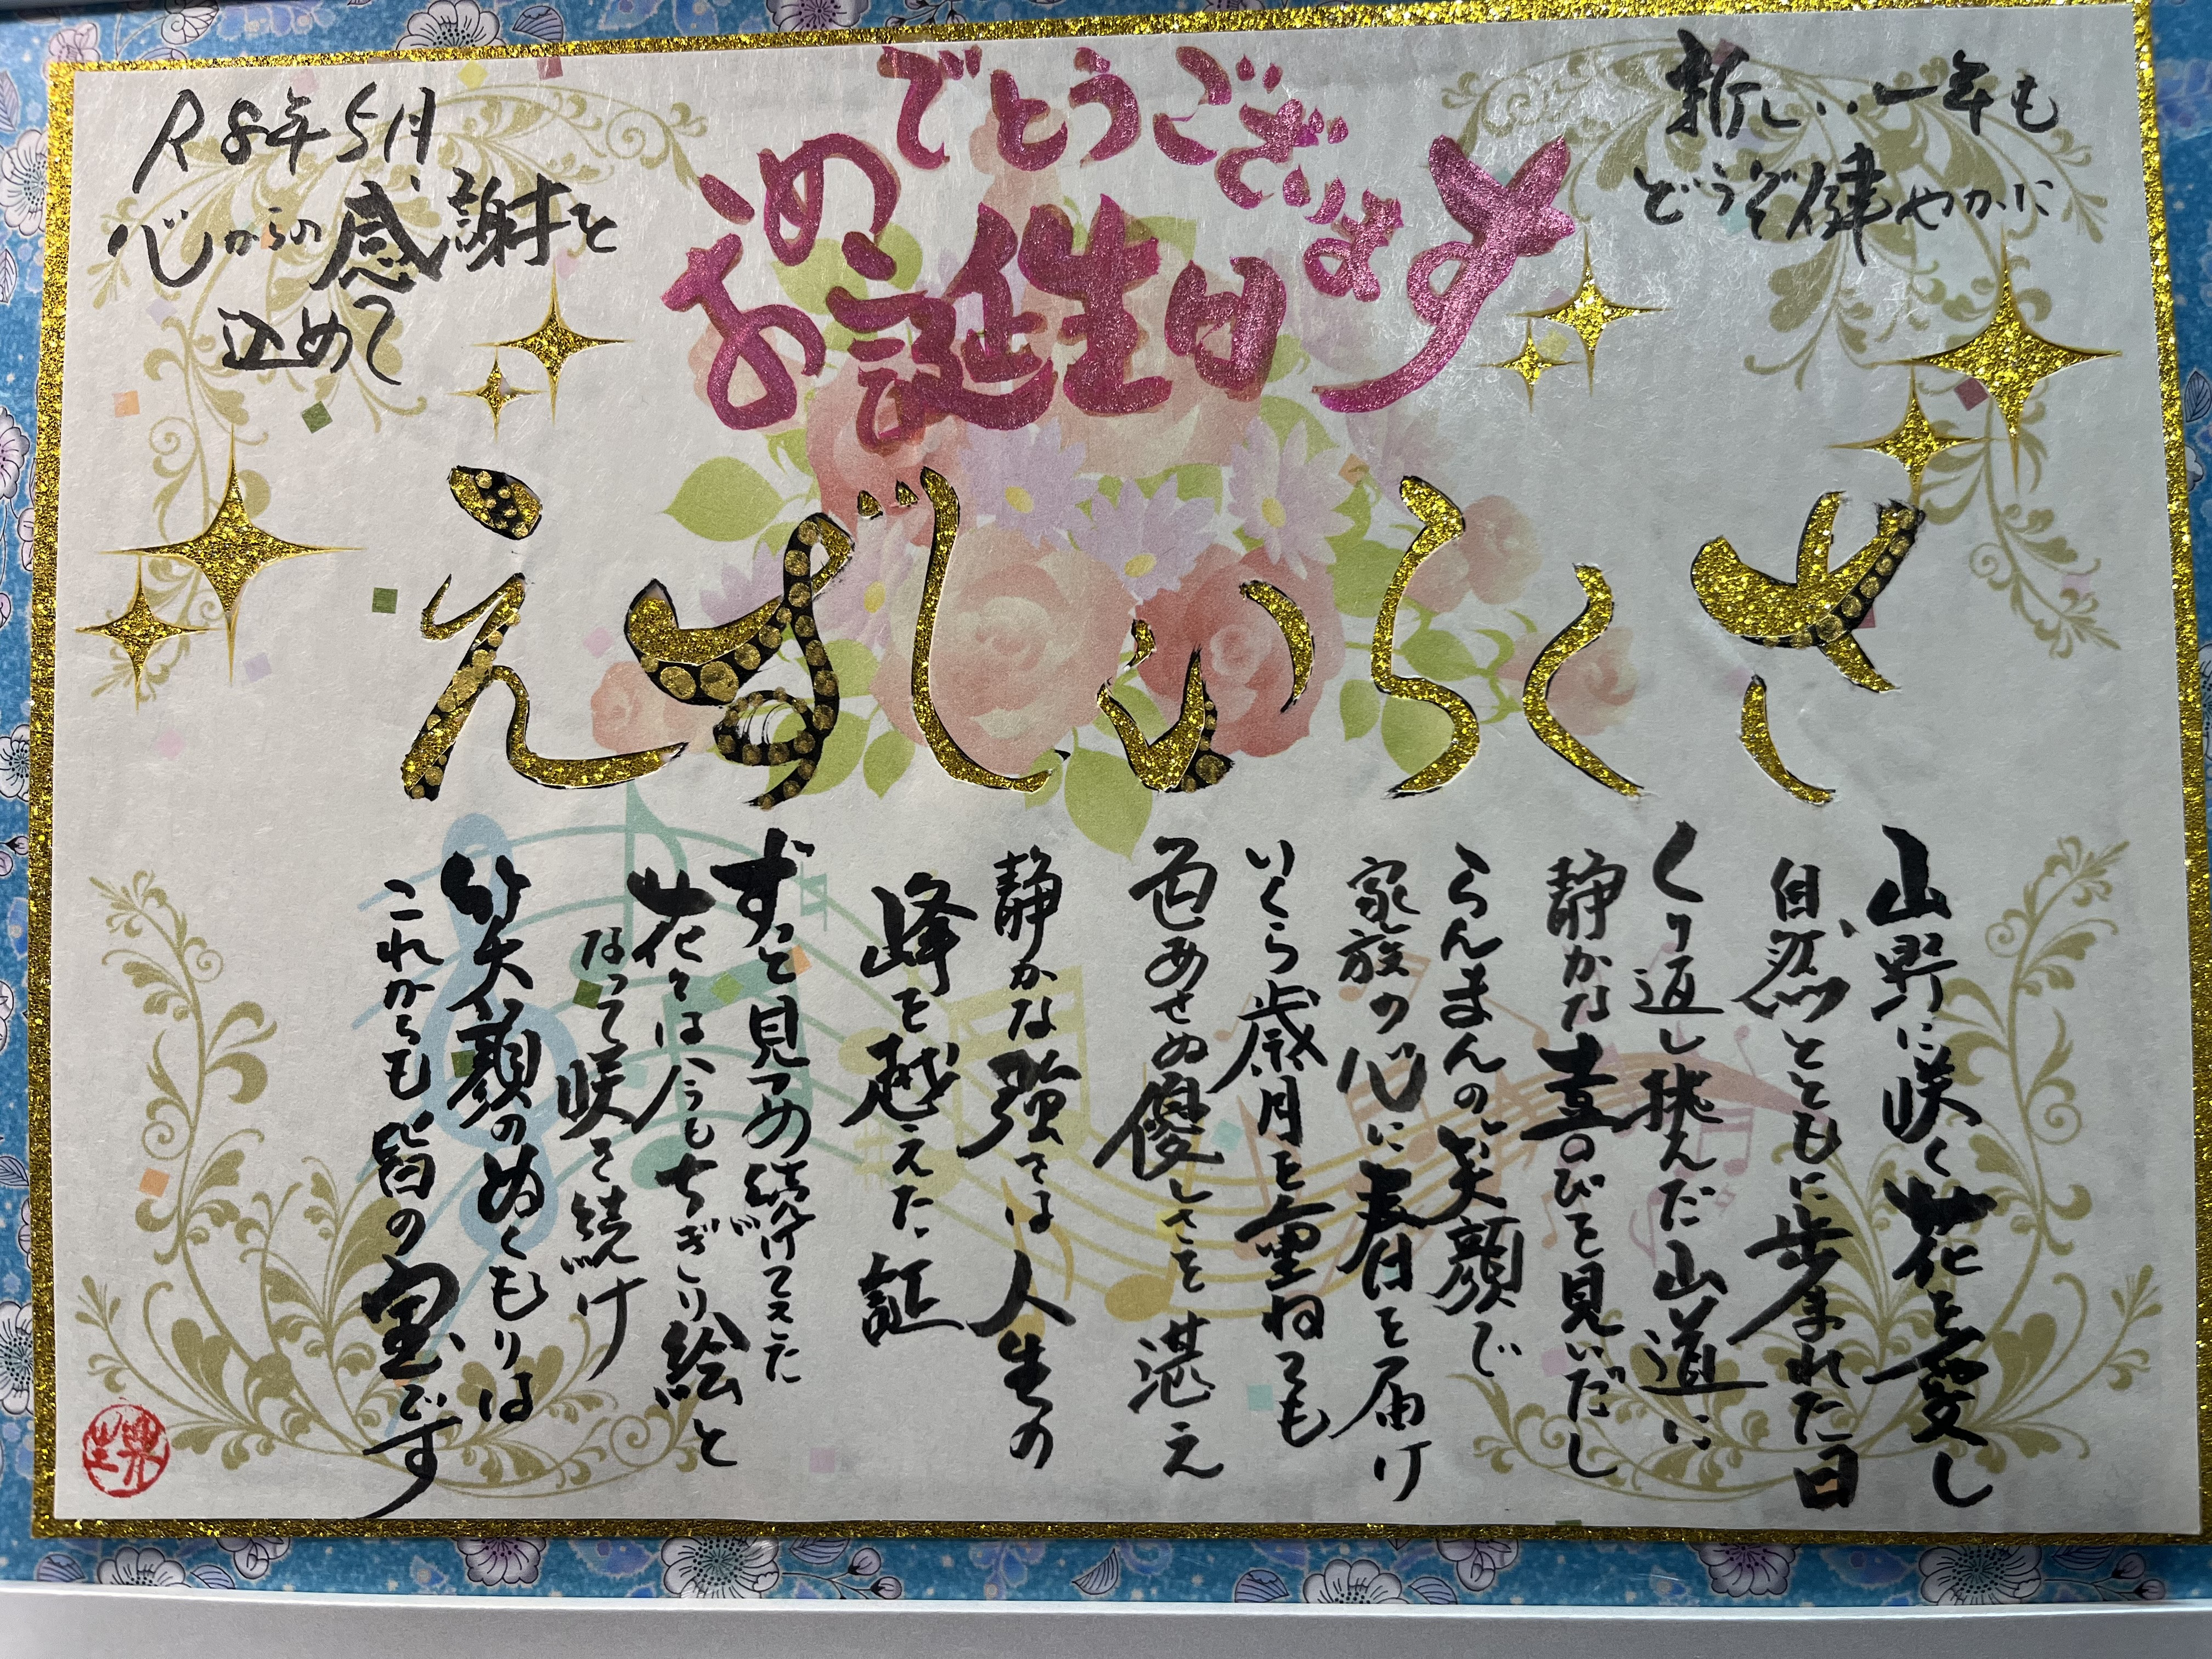 お誕生日
おめでとうございます
新しい一年も
どうぞ健やかに
さくらいしずえ
山野に咲く花を愛し
自然とともに歩まれた日
くり返し挑んだ山道に
静かな喜びを見いだし
らんまんの笑顔で
家族の心に春日を届け
いくら歳月を重ねても
色あせぬ優しさを湛え
静かな強さは人生の
峰を越えた証
ずっと見つめ続けてきた
花々は今もちぎり絵と
なって咲き続け
笑顔のぬくもりは
これからも皆の宝です
R8年5月
心からの感謝を
込めて